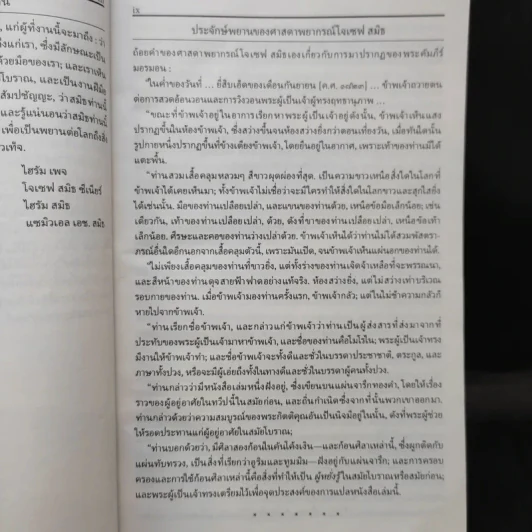 น
, แก่ผู้ที่งานนี้จะมาถึง : ว่า
งแก่เรา, ซึ่งมีลักษณะเป็น
ด้วยมือของเรา; และเราเห็น
โบราณ, และเป็นงานฝีมือ
สัมปชัญญะ, ว่าสมิธท่านนี้
และรู้แน่นอนว่าสมิธท่านนี้
เพื่อเป็นพยานต่อโลกถึงสิ่ง
เท็จ.
ไฮรัม เพจ
โจเซฟ สมิธ ซีเนียร์
ไฮรัม สมิธ
แซมิวเอล เอช. สมิธ
ix
ประจักษ์พยานของศาสดาพยากรณ์โจเซฟ สมิธ
ถ้อยคำของศาสดาพยากรณ์โจเซฟ สมิธเองเกี่ยวกับการมาปรากฏของพระคัมภีร์
มอรมอน :
"ในค่ำของวันที่ ... ยี่สิบเอ็ดของเดือนกันยายน [ค.ศ. ๑๘๒๓] ... ข้าพเจ้าถวายตน
ต่อการสวดอ้อนวอนและการวิงวอนพระผู้เป็นเจ้าผู้ทรงฤทธานุภาพ ...
"ขณะที่ข้าพเจ้าอยู่ในอาการเรียกหาพระผู้เป็นเจ้าอยู่ดังนั้น, ข้าพเจ้าเห็นแสง
ปรากฏขึ้นในห้องข้าพเจ้า, ซึ่งสว่างขึ้นจนห้องสว่างยิ่งกว่าตอนเที่ยงวัน, เมื่อทันใดนั้น
รูปกายหนึ่งปรากฏขึ้นที่ข้างเตียงข้าพเจ้า, โดยยืนอยู่ในอากาศ, เพราะเท้าของท่านมิได้
แตะพื้น.
"ท่านสวมเสื้อคลุมหลวมๆ สีขาวผุดผ่องที่สุด. เป็นความขาวเหนือสิ่งใดในโลกที่
ข้าพเจ้าได้เคยเห็นมา; ทั้งข้าพเจ้าไม่เชื่อว่าจะมีใครทำให้สิ่งใดในโลกขาวและสุกใสยิ่ง
ได้เช่นนั้น. มือของท่านเปลือยเปล่า, และแขนของท่านด้วย, เหนือข้อมือเล็กน้อย; เช่น
เดียวกัน, เท้าของท่านเปลือยเปล่า, ด้วย, ดังที่ขาของท่านเปลือยเปล่า, เหนือข้อเท้า
เล็กน้อย. ศีรษะและคอของท่านว่างเปล่าด้วย. ข้าพเจ้าเห็นได้ว่าท่านไม่ได้สวมพัสตรา-
ภรณ์อื่นใดอีกนอกจากเสื้อคลุมตัวนี้, เพราะมันเปิด, จนข้าพเจ้าเห็นแผ่นอกของท่านได้.
"ไม่เพียงเสื้อคลุมของท่านที่ขาวยิ่ง, แต่ทั้งร่างของท่านเจิดจ้าเหลือที่จะพรรณนา,
และสีหน้าของท่านดุจสายฟ้าฟาดอย่างแท้จริง. ห้องสว่างยิ่ง, แต่ไม่สว่างเท่าบริเวณ
รอบกายของท่าน. เมื่อข้าพเจ้ามองท่านครั้งแรก, ข้าพเจ้ากลัว; แต่ในไม่ช้าความกลัวก็
หายไปจากข้าพเจ้า.
"ท่านเรียกชื่อข้าพเจ้า, และกล่าวแก่ข้าพเจ้าว่าท่านเป็นผู้ส่งสารที่ส่งมาจากที่
ประทับของพระผู้เป็นเจ้ามาหาข้าพเจ้า, และชื่อของท่านคือโมโรไน; พระผู้เป็นเจ้าทรง
มีงานให้ข้าพเจ้าทำ; และชื่อข้าพเจ้าจะทั้งดีและชั่วในบรรดาประชาชาติ, ตระกูล, และ
ภาษาทั้งปวง, หรือจะมีผู้เล่ยถึงทั้งในทางดีและชั่วในบรรดาผู้คนทั้งปวง.
"ท่านกล่าวว่ามีหนังสือเล่มหนึ่งฝังอยู่, ซึ่งเขียนบนแผ่นจารึกทองคำ, โดยให้เรื่อง
ราวของผู้อยู่อาศัยในทวีปนี้ในสมัยก่อน, และถิ่นกำเนิดซึ่งจากที่นั้นพวกเขาออกมา.
ท่านกล่าวด้วยว่าความสมบูรณ์ของพระกิตติคุณอันเป็นนิจมีอยู่ในนั้น, ดังที่พระผู้ช่วย
ให้รอดประทานแก่ผู้อยู่อาศัยในสมัยโบราณ;
"ท่านบอกด้วยว่า, มีศิลาสองก้อนในคันโค้งเงิน—และก้อนศิลาเหล่านี้, ซึ่งผูกติดกับ
แผ่นทับทรวง, เป็นสิ่งที่เรียกว่าอูริมและทูมมิม—ฝังอยู่กับแผ่นจารึก; และการครอบ
ครองและการใช้ก้อนศิลาเหล่านี้คือสิ่งที่ทำให้เป็น ผู้หยั่งรู้ ในสมัยโบราณหรือสมัยก่อน;
และพระผู้เป็นเจ้าทรงเตรียมไว้เพื่อจุดประสงค์ของการแปลหนังสือเล่มนี้.
* * * * * * *